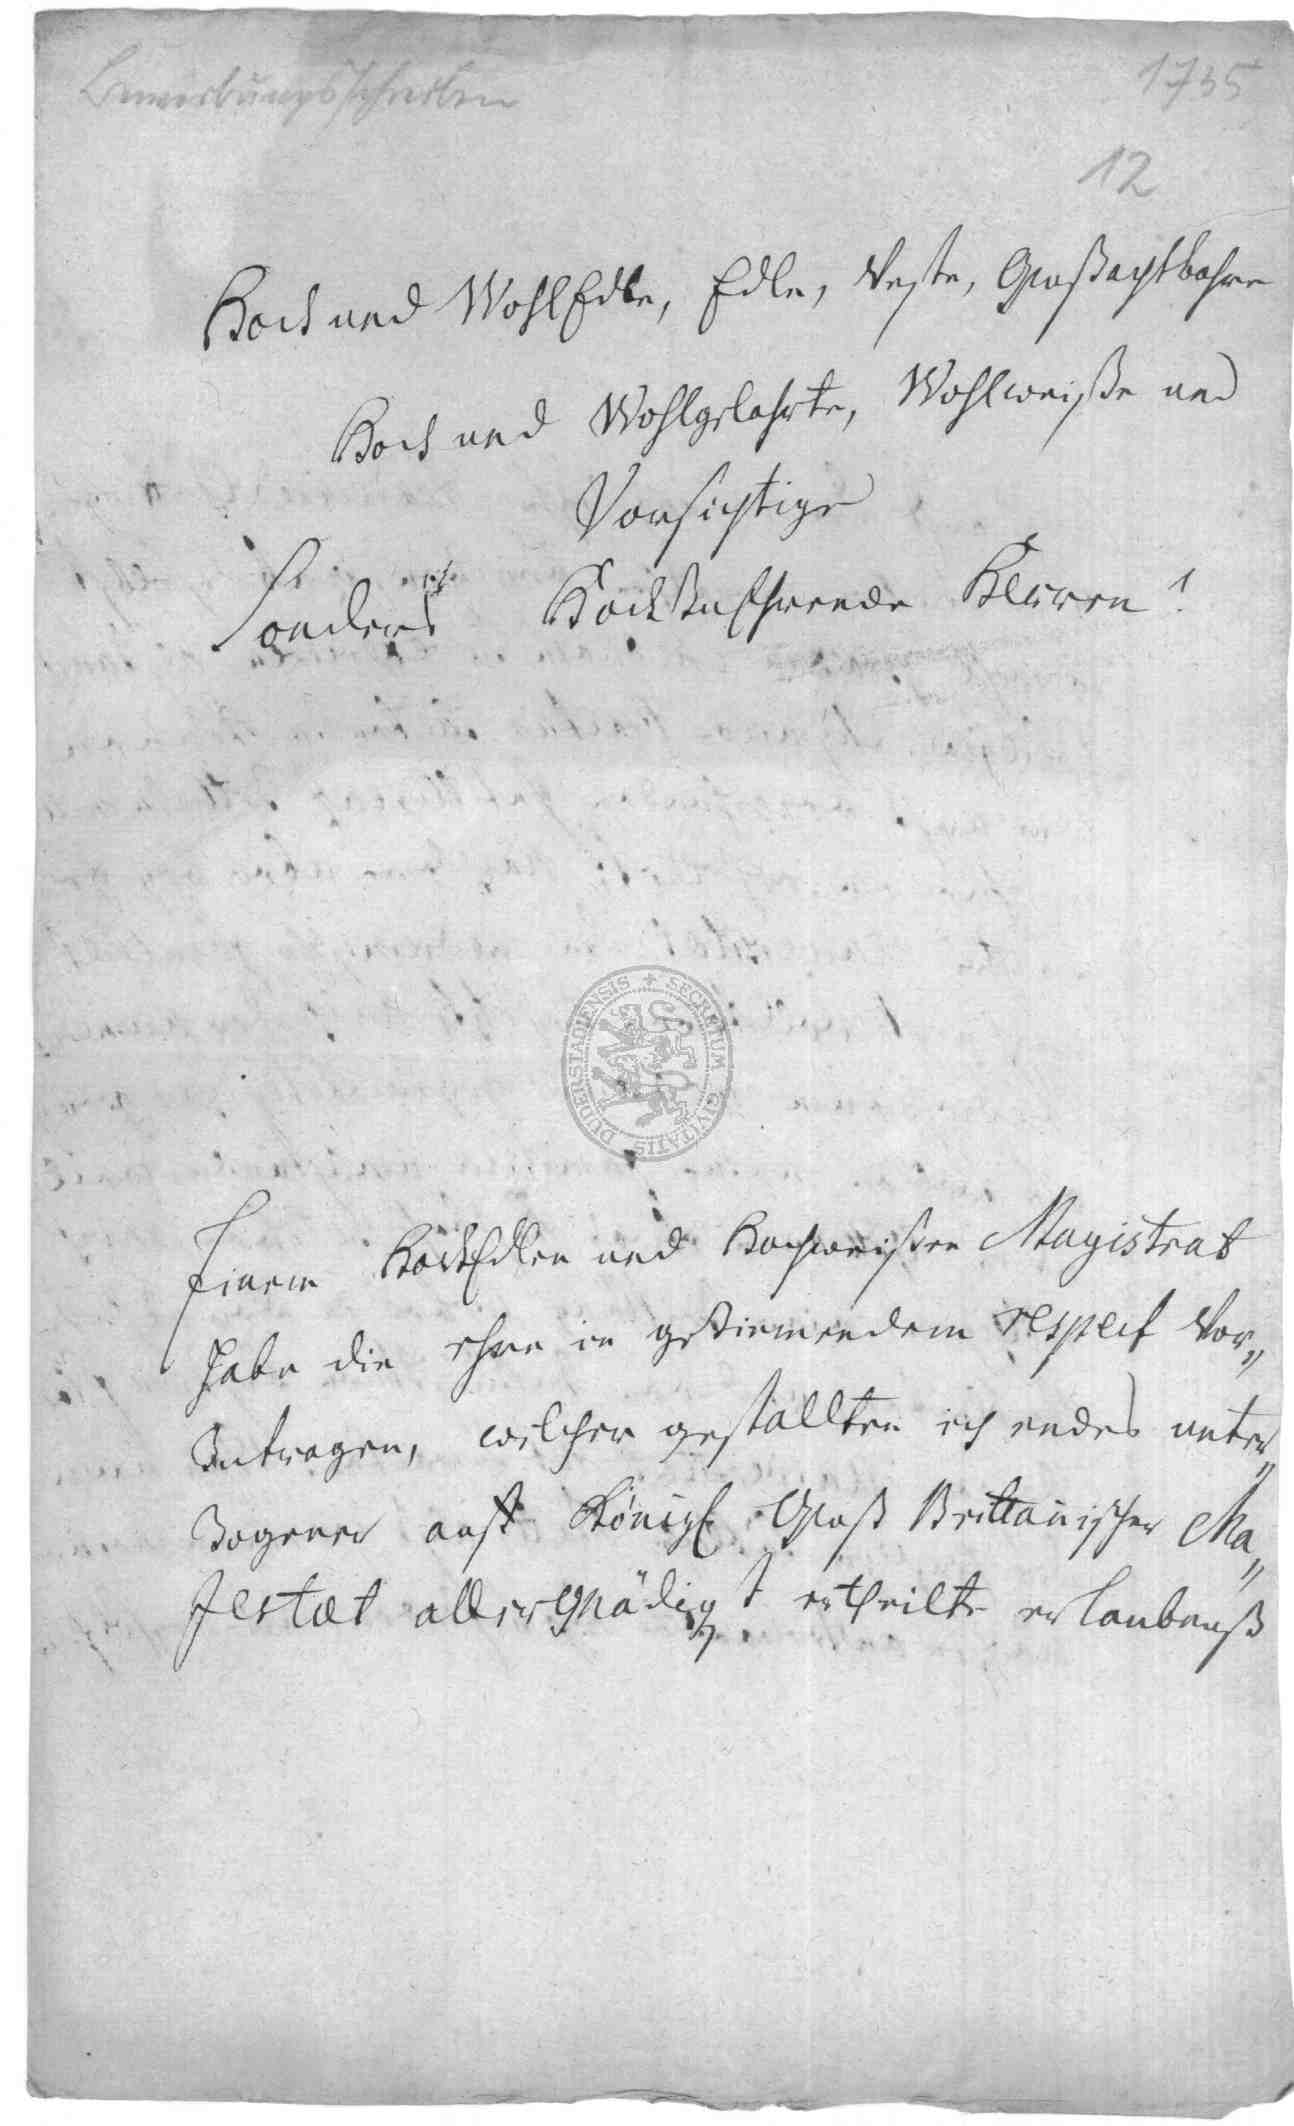 Bewerbungsschreiben
1735
12
Hoch und WohlEdle, Edle, Veste, Großachtbahre
Hoch und Wohlgelahrte, Wohlweiße und
Vorsichtige
Sonders HochzuEhrende Herren!
DUDERSTADIENSIS + SECRETUM CIVITATIS
Einem HochEdlen und Hochweißen Magistrat
habe die ehre in geziemendem respect Vor„
zutragen, welcher gestallten ich endes unter„
zogener auff Königl Groß Brittanischer Ma„
jestæt allergnädigst ertheilte erlaubnuß